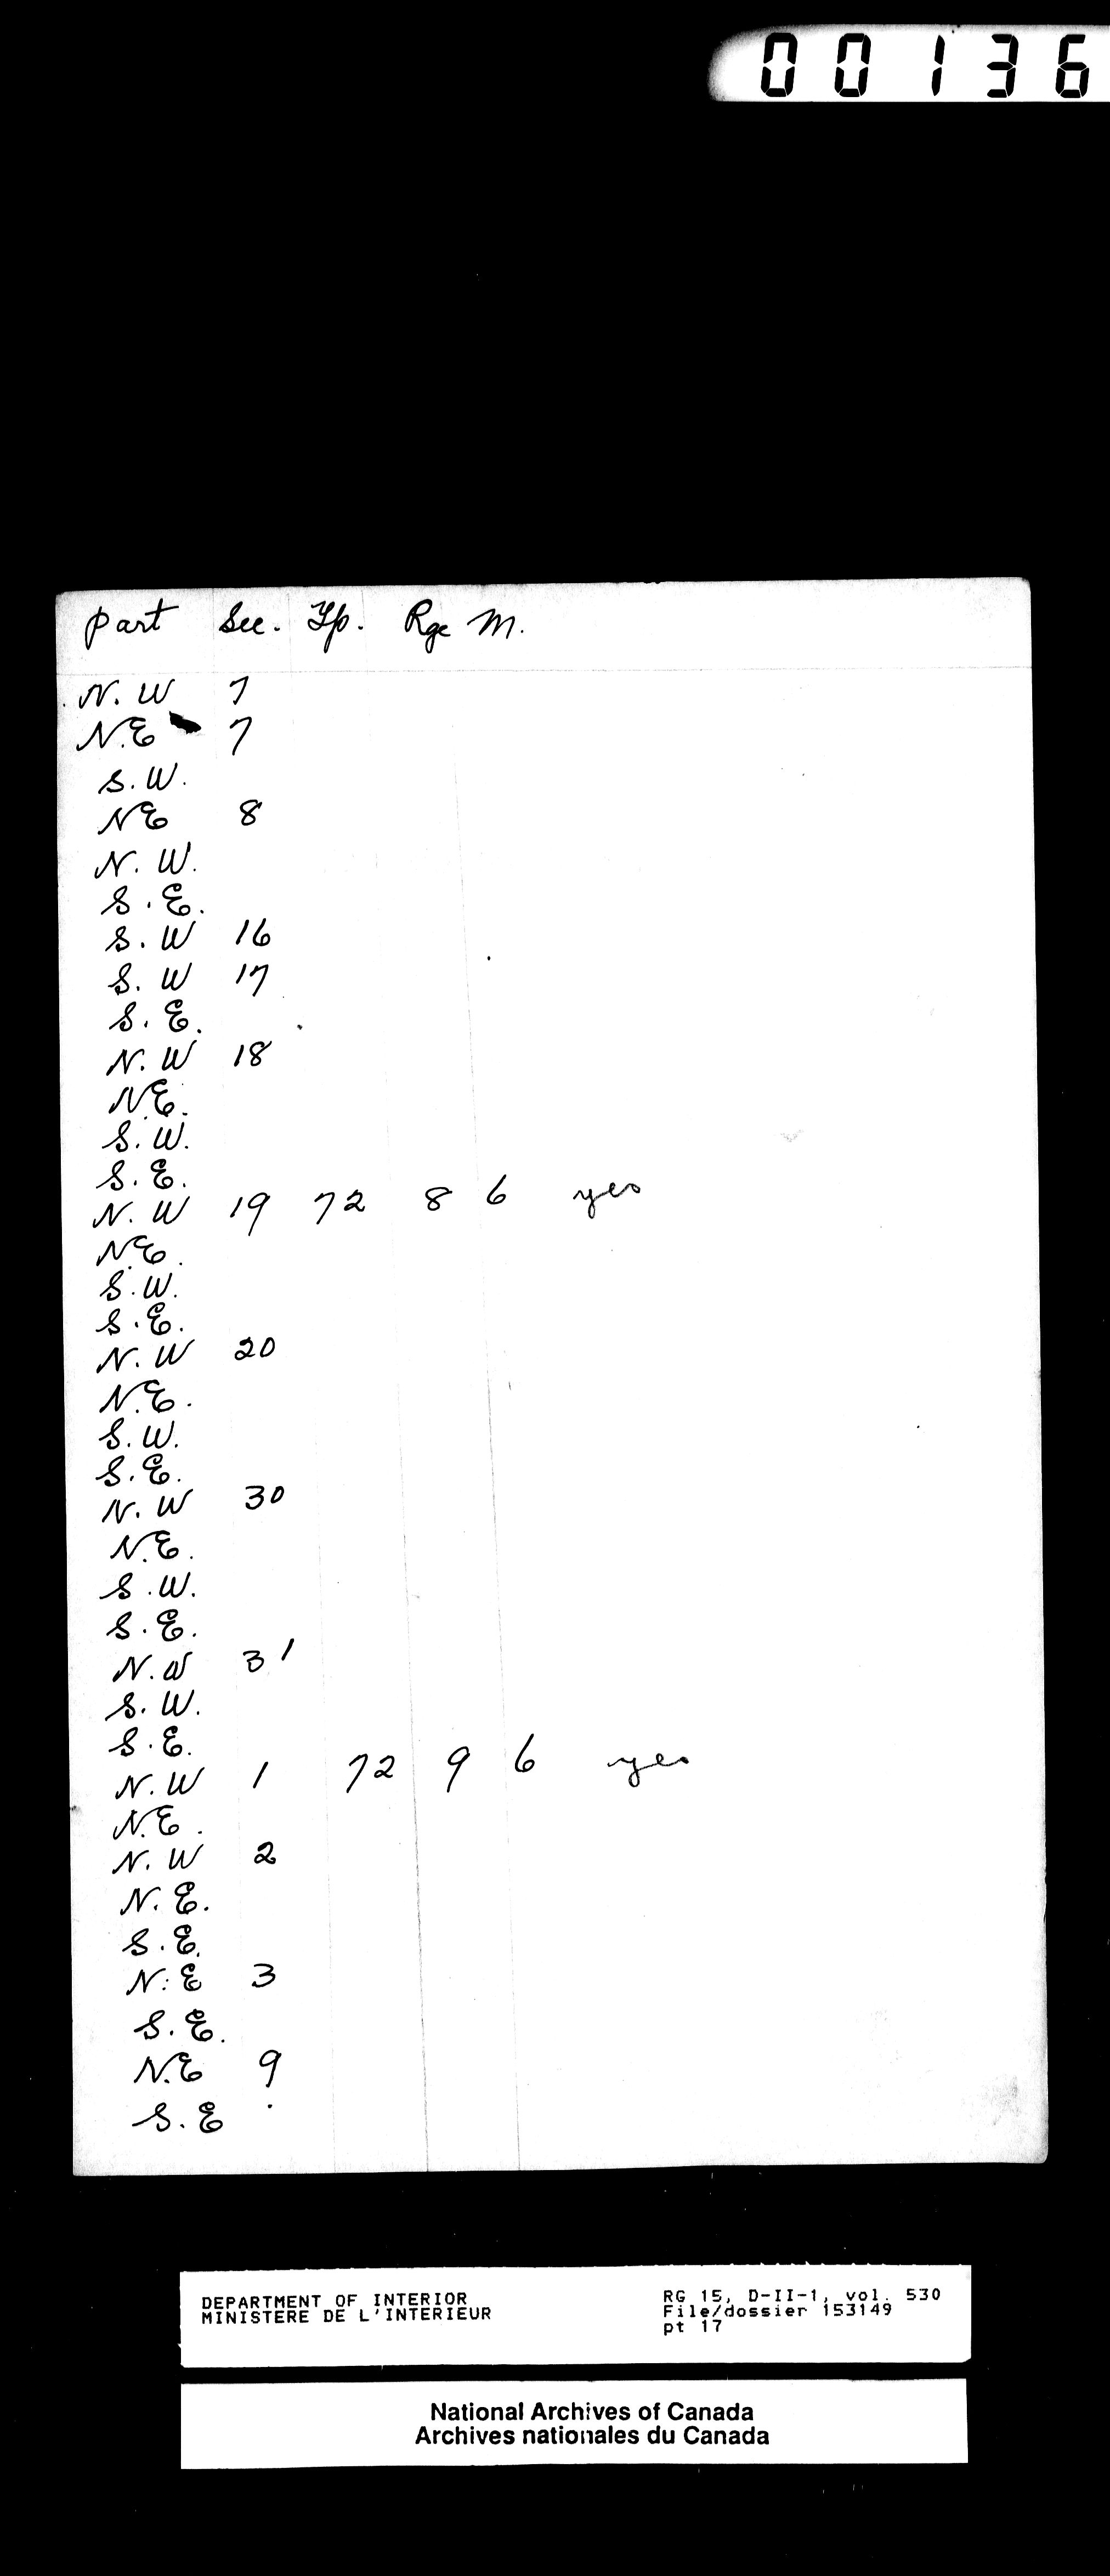 00136
Part Sec. Tp. Rge M.
N.W 7
N.E 7
S.W.
NE 8
N.W.
S.E.
S.W 16
S.W 17
S.E.
N.W 18
N.E.
S.W.
S.E.
N.W 19 72 8 6 yes
N.E.
S.W.
S.E.
N.W 20
N.E.
S.W.
S.E.
N.W 30
N.E.
S.W.
S.E.
N.W 31
S.W.
S.E.
N.W 1 72 9 6 yes
N.E.
N.W 2
N.E.
S.E.
N.E 3
S.E.
N.E 9
S.E
DEPARTMENT OF INTERIOR RG 15, D-II-1, vol. 530
MINISTERE DE L'INTERIEUR File/dossier 153149
pt 17
National Archives of Canada
Archives nationales du Canada